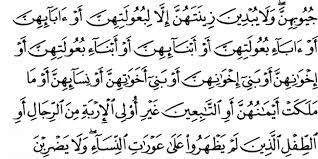 جُيُوبِهِنَّ ۖ وَلَا يُبْدِينَ زِينَتَهُنَّ إِلَّا لِبُعُولَتِهِنَّ أَوْ ءَابَآئِهِنَّ
أَوْ ءَابَآءِ بُعُولَتِهِنَّ أَوْ أَبْنَآئِهِنَّ أَوْ أَبْنَآءِ بُعُولَتِهِنَّ أَوْ
إِخْوَٰنِهِنَّ أَوْ بَنِىٓ إِخْوَٰنِهِنَّ أَوْ بَنِىٓ أَخَوَٰتِهِنَّ أَوْ نِسَآئِهِنَّ أَوْ مَا
مَلَكَتْ أَيْمَٰنُهُنَّ أَوِ ٱلتَّٰبِعِينَ غَيْرِ أُو۟لِى ٱلْإِرْبَةِ مِنَ ٱلرِّجَالِ أَوِ
ٱلطِّفْلِ ٱلَّذِينَ لَمْ يَظْهَرُوا۟ عَلَىٰ عَوْرَٰتِ ٱلنِّسَآءِ ۖ وَلَا يَضْرِبْنَ